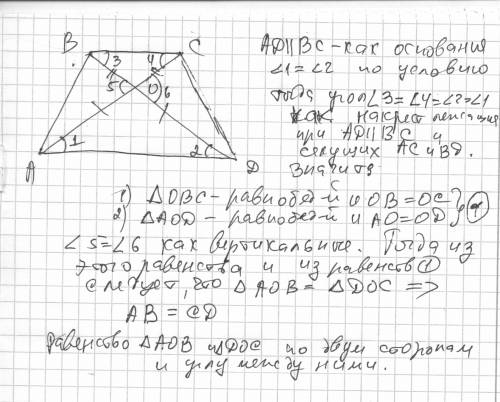 B
C
3
4
5
O
6
A
1
2
D
AD||BC - как основания
∠1=∠2 по условию
тогда угол ∠3=∠4=∠2=∠1
как накрест лежащие
при AD||BC и
секущих AC и BD.
Значит
1) △OBC - равнобед-й и OB=OC
2) △AOD - равнобед-й и AO=OD
∠5=∠6 как вертикальные. Тогда из
этого равенства и из равенств
следует, что △AOB = △DOC =>
AB = CD
равенство △AOB и △DOC по двум сторонам
и углу между ними.